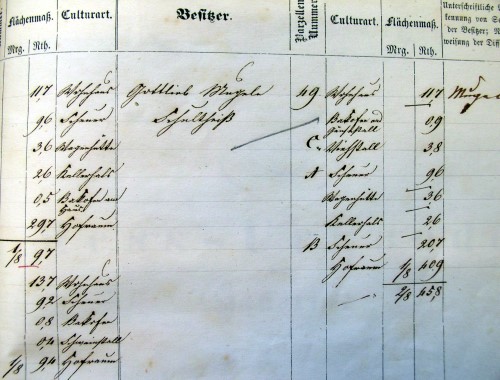 Flächenmaß. Culturart. Besitzer. Parzellen Nummer. Culturart. Flächenmaß. Unterschriftliche
kennung von
der Besitzer;
weisung der Diff
Mrg. Rth. Mrg. Rth.
11,7 Wohnhaus Gottlieb 49 Wohnhaus 11,7
9,6 Scheuer Schultheiß Backofen und 0,9
3,6 Wagenhütte C. Viehstall 3,8
2,6 Kellerhals A Scheuer 9,6
0,5 Backofen und Wagenhütte 3,6
29,7 Hofraum Kellerhals 2,6
1/8 9,7 B Scheuer 20,7
13,7 Wohnhaus Hofraum 1/8 40,9
9,2 Scheuer 2/8 45,8
0,8 Backofen
0,4 Schweinstall
1/8 9,4 Hofraum